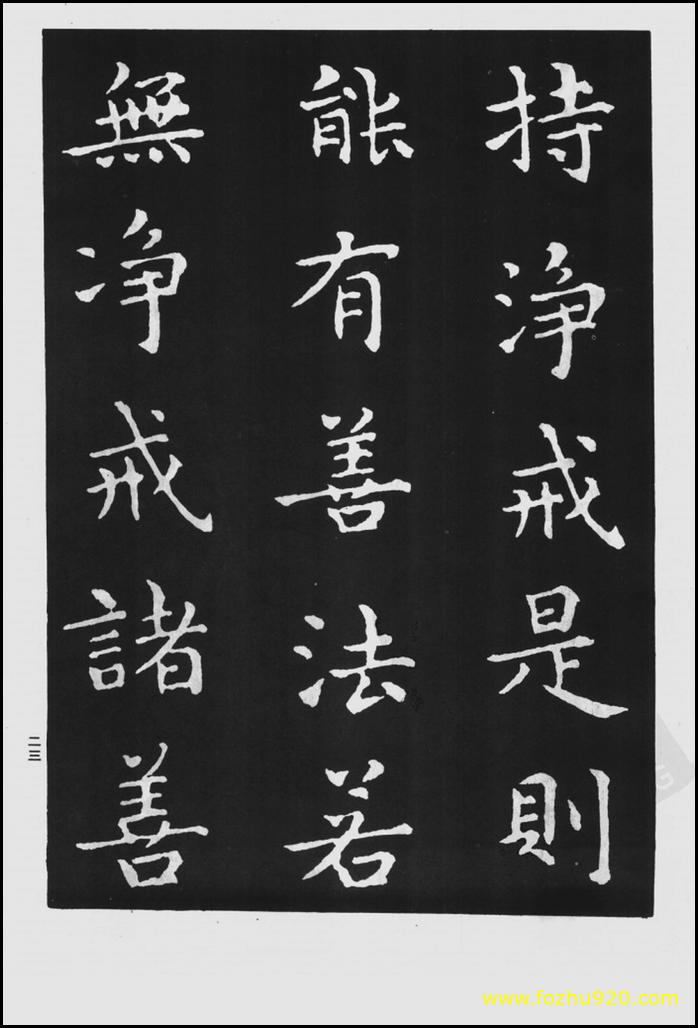 持淨戒是則
能有善法若
無净戒諸善
二三
www.fozhu920.com